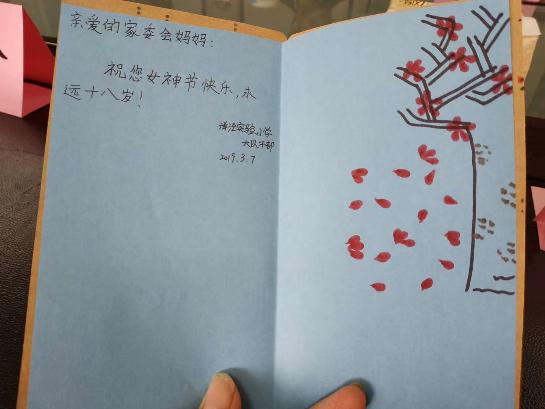 亲爱的家委会妈妈：
祝您女神节快乐，永
远十八岁！
实验小学
大队干部
2019.3.7